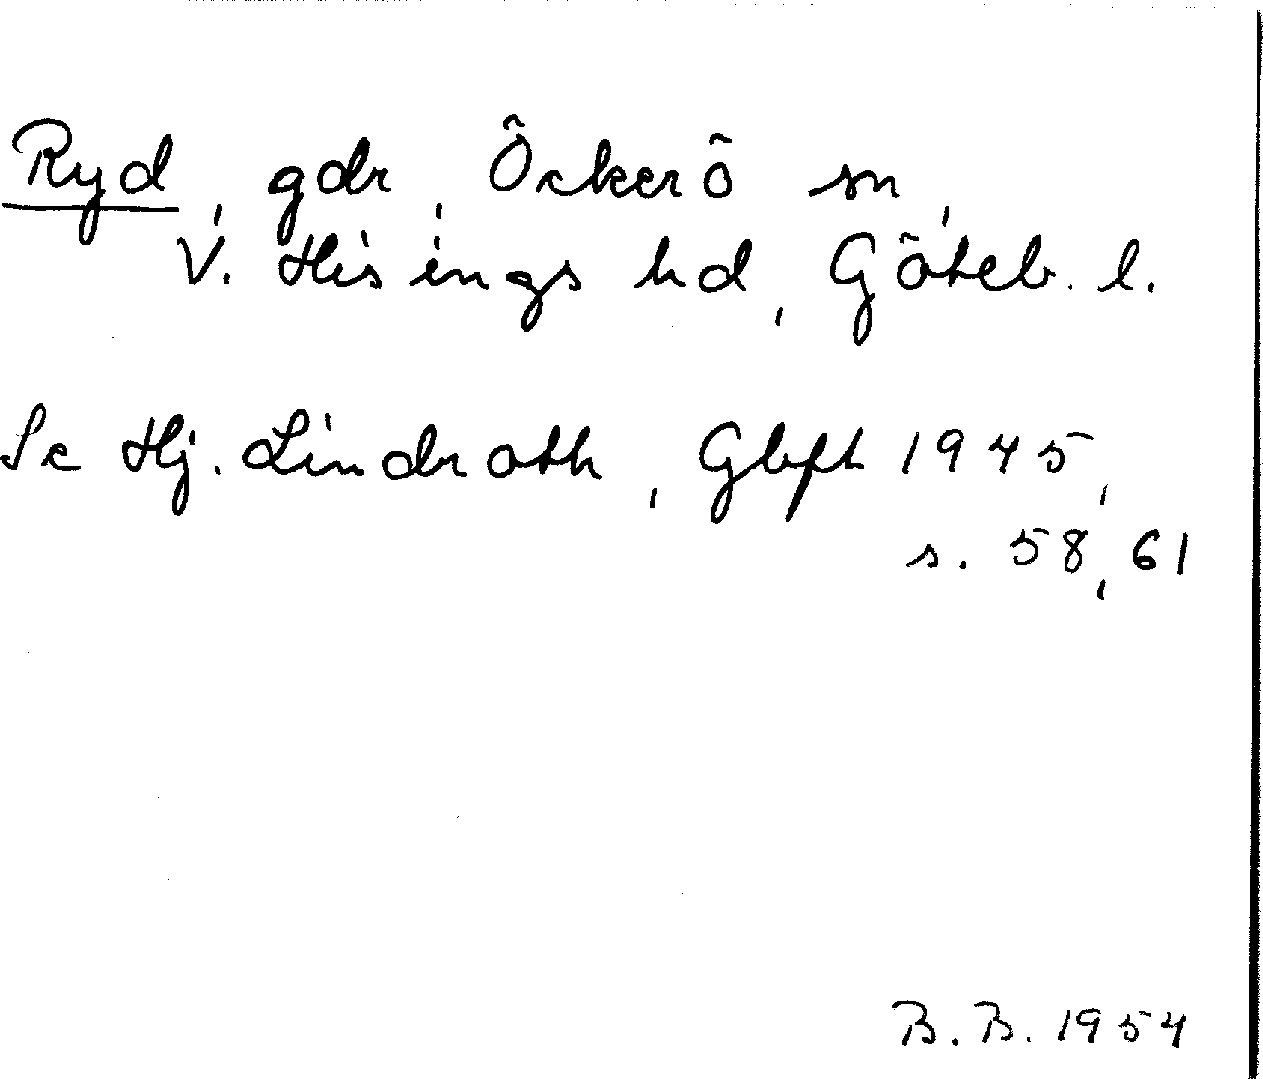 Ryd, gdr, Öckerö sn,
V. Hisings hd, Göteb. l.
Se Hj. Lindroth, Gbft 1945,
s. 58, 61
B. B. 1954